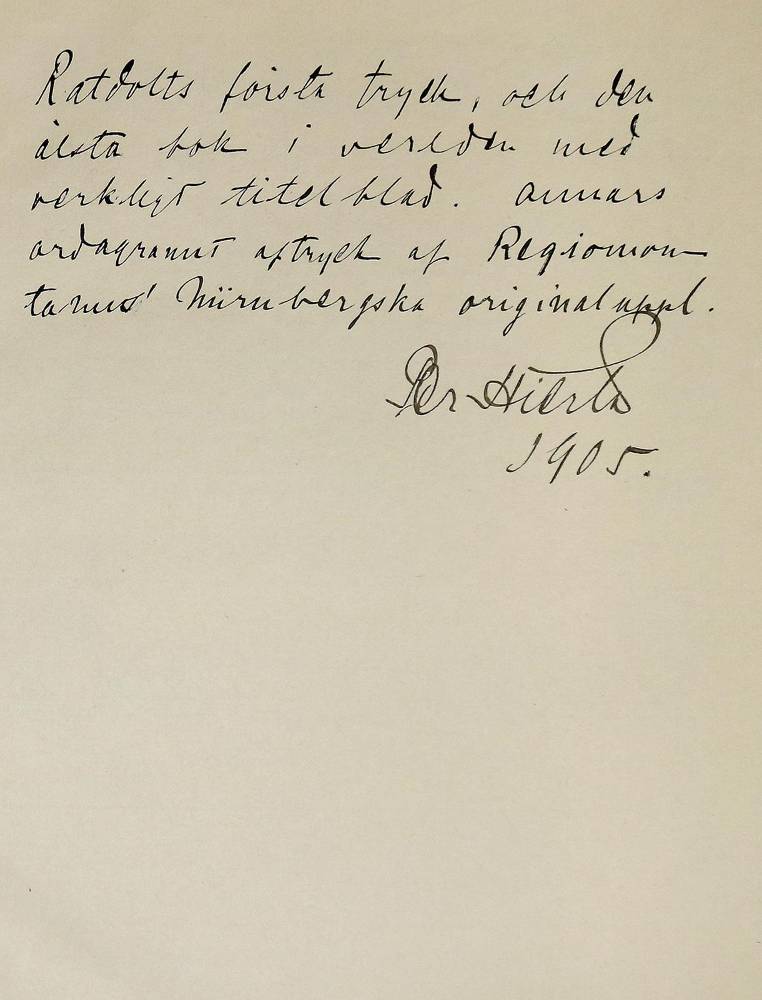 Ratdolts första tryck, och den
älsta bok i verlden med
verkligt titelblad. Annars
ordagrannt aftryck af Regiomon-
tanus' Nürnbergska originaluppl.
Per Hierta
1905.